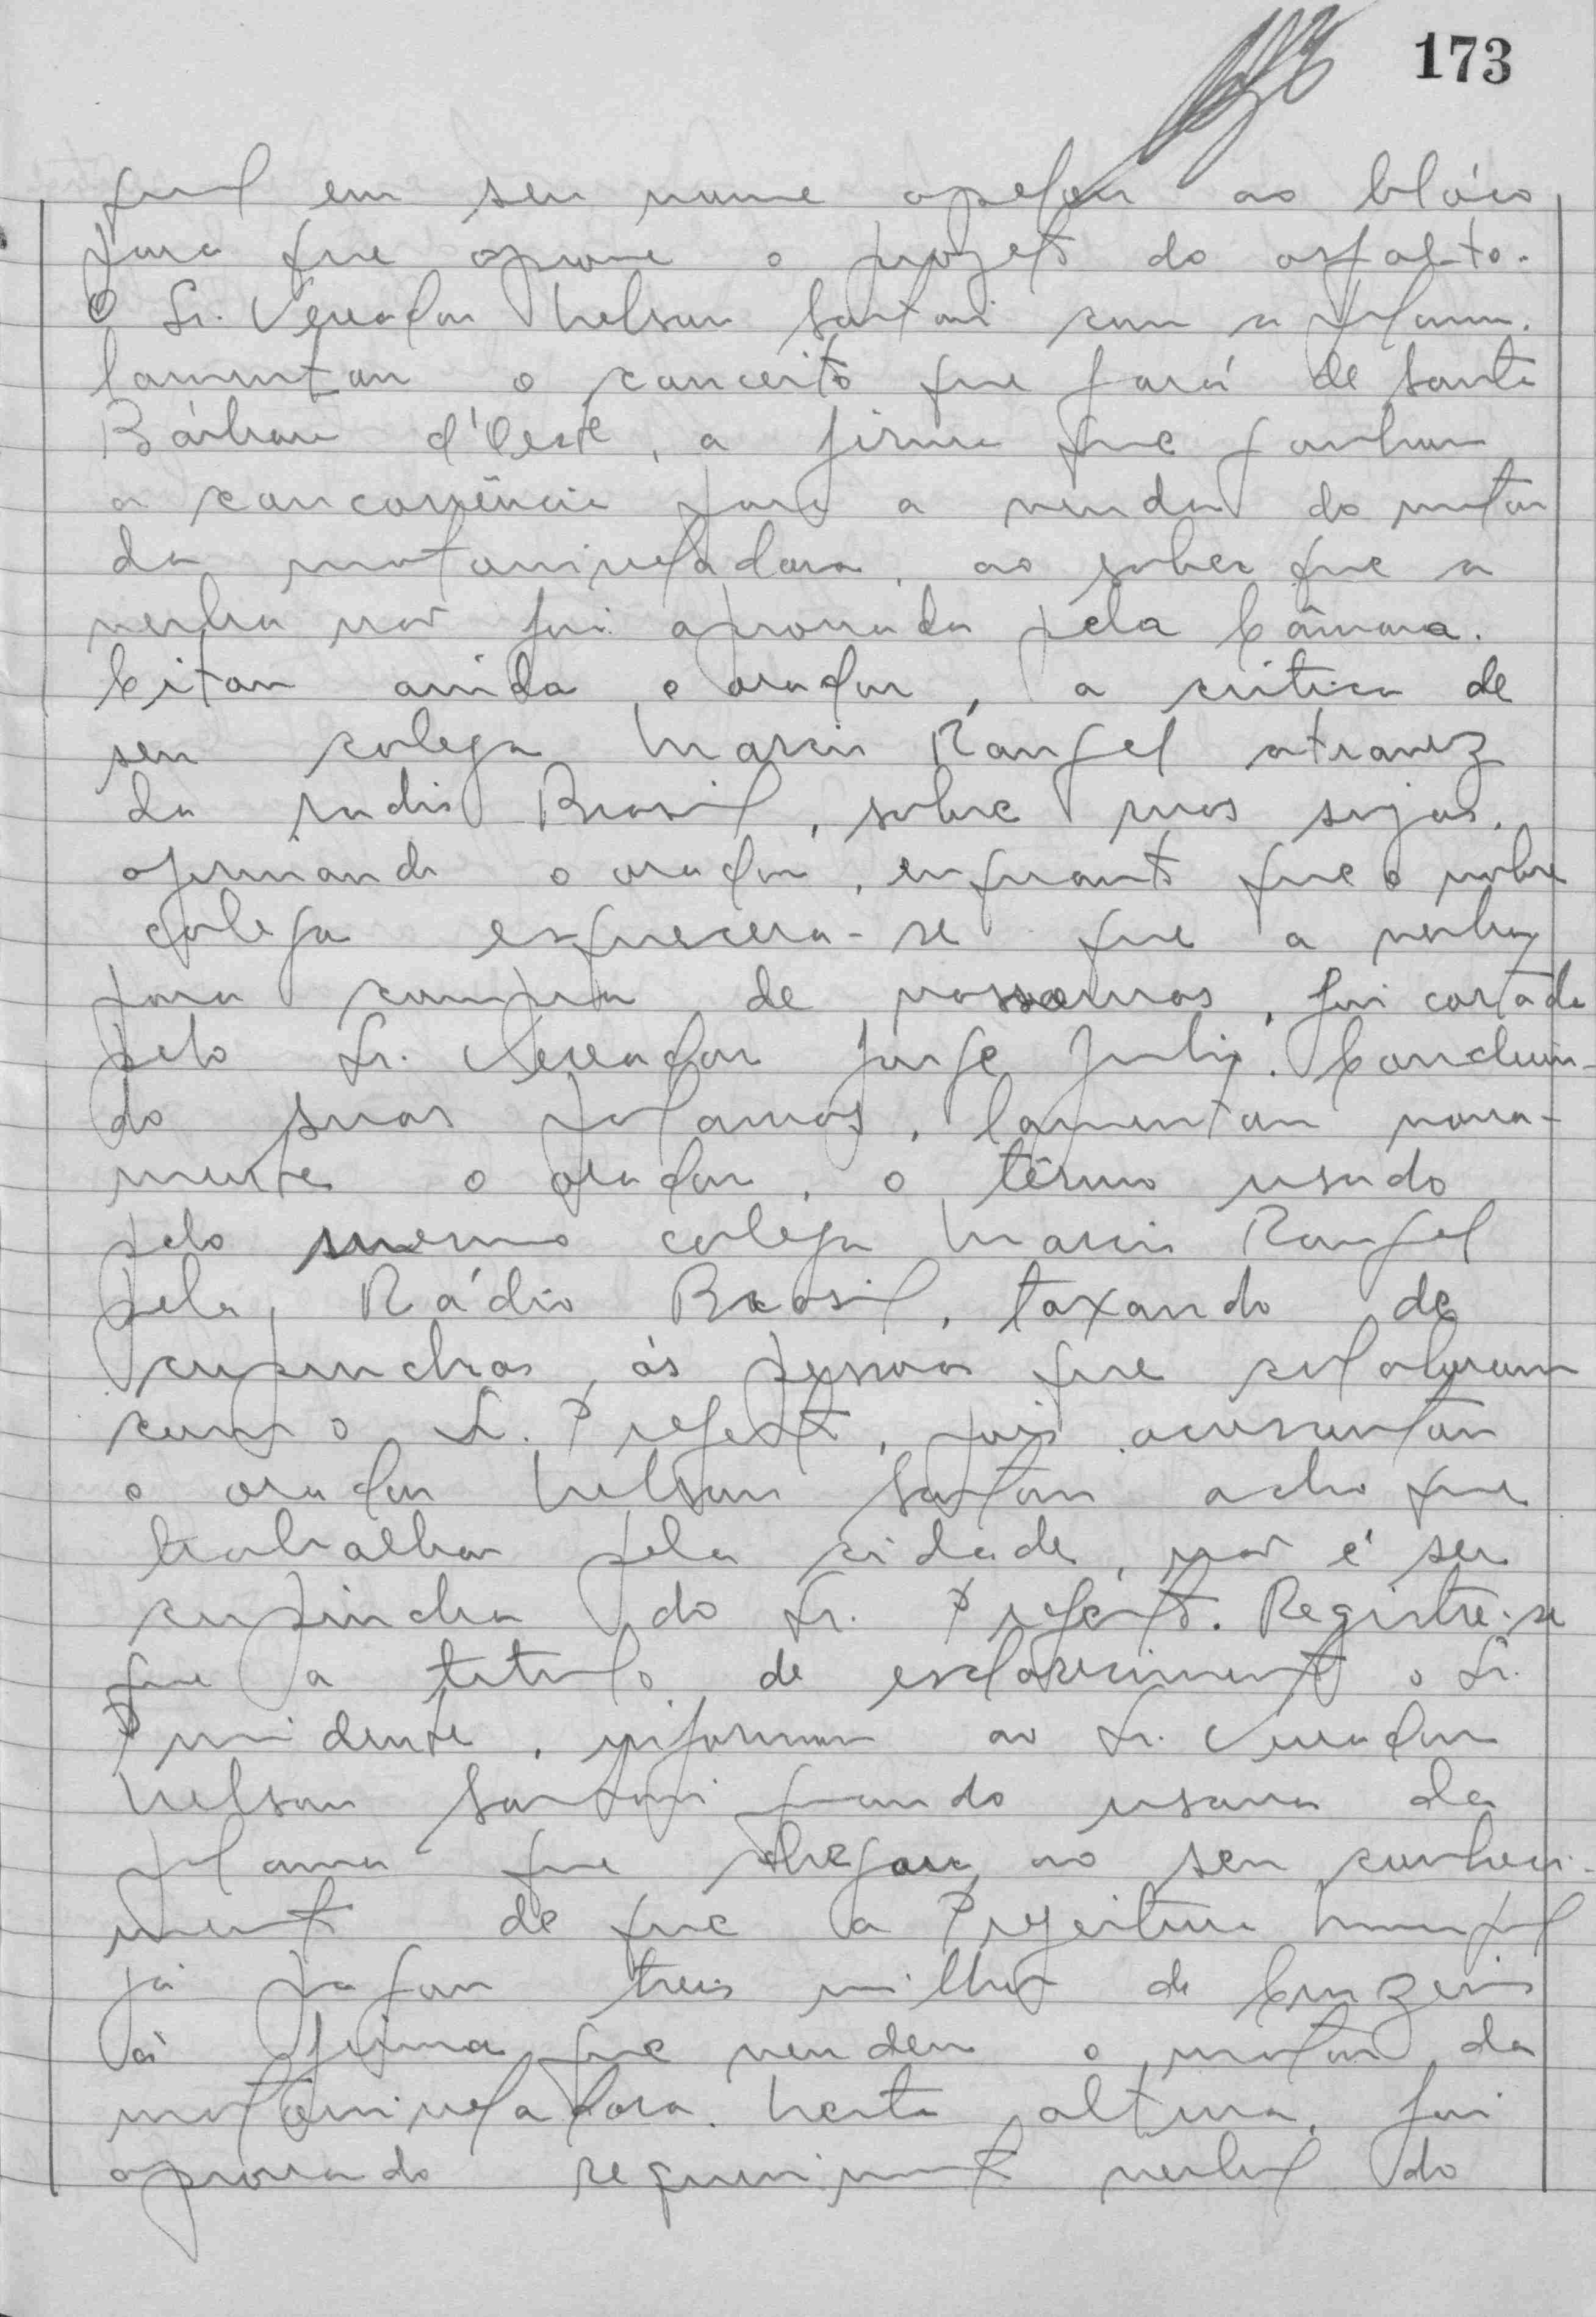 173
qual em seu nome apelou ao blóco
para que aprove o projeto do asfalto.
O Sr. Vereador Nelson Santoni com a palavra.
lamentou o conceito que fará de Santa
Bárbara d'Oeste, a firma que ganhou
a concorrência para a venda do motor
da motoniveladora, ao saber que a
verba não foi aprovada pela Câmara.
Citou ainda o orador, a critica de
seu colega Marcio Rangel atravez
da radio Brasil, sobre ruas sujas.
afirmando o orador, enquanto que o nobre
colega esquecera-se que a verba
para compra de vassouras, foi cortada
pelo Sr. Vereador Jorge Julio. Concluin-
do suas palavras, lamentou nova-
mente o orador, o têrmo usado
pelo mesmo colega Marcio Rangel
pela Rádio Brasil, taxando de
cupinchas, ás pessoas que colaboram
com o Sr. Prefeito, pois acrescentou
o orador Nelson Santoni acho que
trabalhar pela cidade, não é ser
cupincha do Sr. Prefeito. Registre-se
que a titulo de esclarecimento o Sr.
Presidente, informou ao Sr. Vereador
Nelson Santoni quando usava da
palavra que chegou ao seu conheci-
mento de que a Prefeitura Municipal
já pagou treis milhões de Cruzeiros
á firma que vendeu o motor da
motoniveladora. Nesta altura, foi
aprovado requerimento verbal do